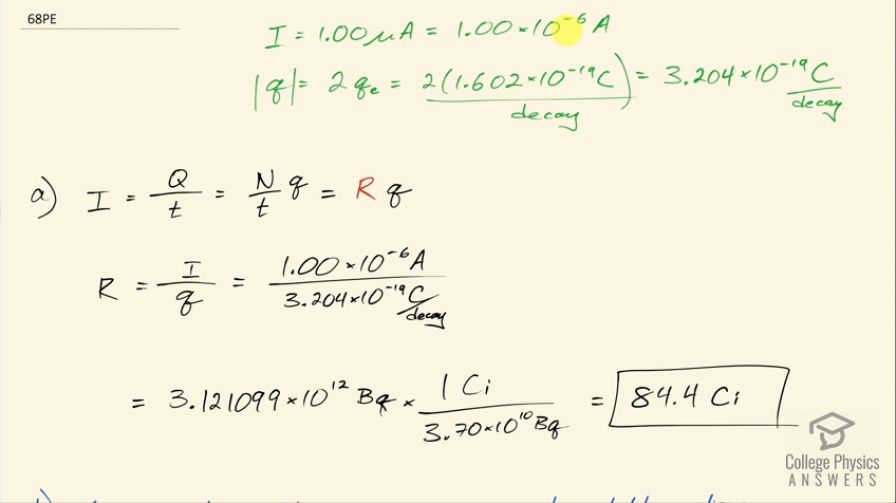 68PE
I = 1.00 μA = 1.00 × 10⁻⁶ A
|q| = 2 qₑ = 2(1.602 × 10⁻¹⁹ C)/decay = 3.204 × 10⁻¹⁹ C/decay
a) I = Q/t = N/t q = R q
R = I/q = 1.00 × 10⁻⁶ A / 3.204 × 10⁻¹⁹ C/decay
= 3.121099 × 10¹² Bq × 1 Ci / 3.70 × 10¹⁰ Bq = 84.4 Ci
College Physics
ANSWERS